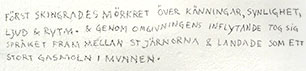 FÖRST SKINGRADES MÖRKRET ÖVER KÄNNINGAR, SYNLIGHET,
LJUD & RYTM. & GENOM OMGIVNINGENS INFLYTANDE TOG SIG
SPRÅKET FRAM MELLAN STJÄRNORNA & LANDADE SOM ETT
STORT GASMOLN I MUNNEN.